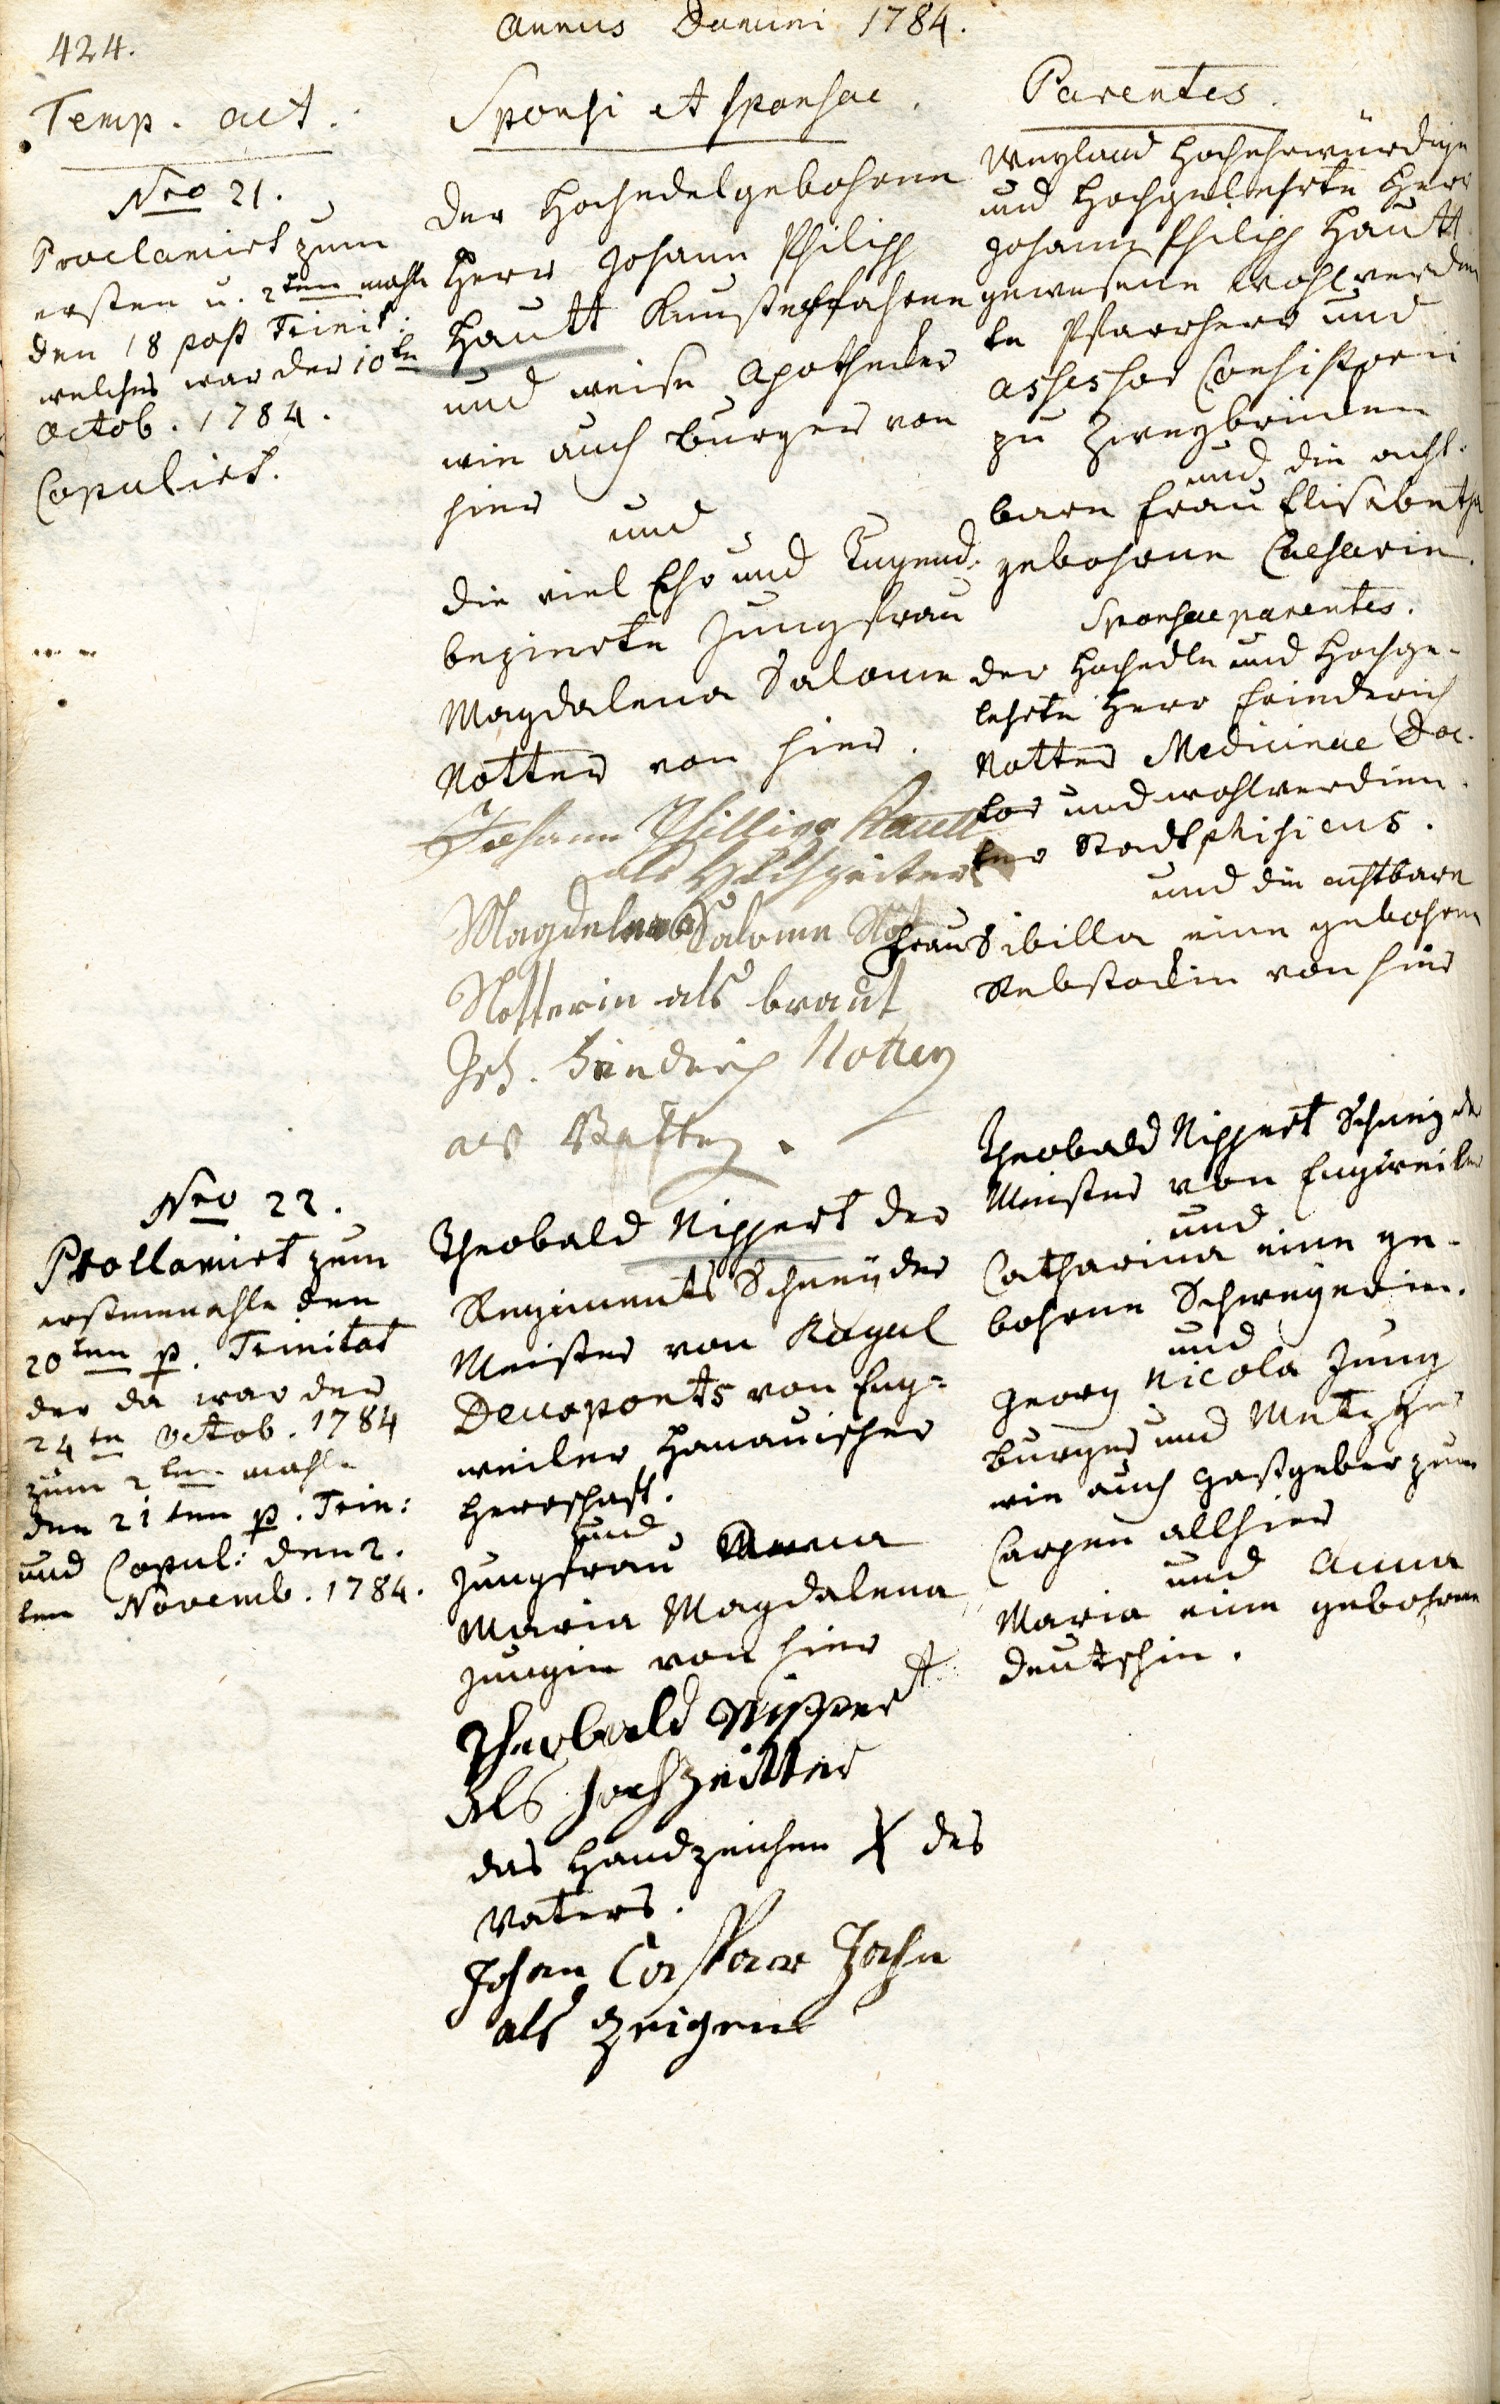 424.
Annus Domini 1784.
Temp. act.
Nro 21.
Proclamirt zum
ersten u. 2ten mahl
den 18 post Trinit:
welches war der 10te
Octob. 1784.
Copulirt.
Sponsi et sponsae.
Der Hochedelgebohrene
Herr Johann Philipp
Hautt Kunsterfahrene
und weise Apothecker
wie auch burger von
hier
und
die viel Ehr und Tugend-
bezierte Jungfrau
Magdalena Salome
Notter von hier.
Johann Philipp Hautt
als Hochzeiter
Magdalena Salome Not
Notterin als braut
Joh. Friedrich Notter
als Vatter.
Parentes.
Weyland Hochehrwürdige
und Hochgelehrte Herr
Johann Philipp Hautt
gewesene Wohlverdien
te Pfarrherr und
assessor Consistorii
zu Zweybrücken
und die acht-
bare Frau Elisabetha
gebohrne Caesarin.
Sponsae parentes.
der Hochedle und Hochge-
lehrte Herr Friedrich
Notter Medicinae Doc-
tor und wohlverdien-
ter Stadtphisicus.
und die achtbare
Frau Sibilla eine gebohrne
Rebstockin von hier
Nro 22.
Proclamirt zum
erstenmahle den
20ten p. Trinitat
der da war der
24te Octob. 1784
zum 2ten mahle
den 21ten p. Trin:
und Copul: den 2.
ten Novemb. 1784.
Theobald Nippert der
Regiments Schneyder
Meister von Royal
Deuxponts von Eng-
weiler Hanauischer
Herrschaft.
und
Jungfrau Anna
Maria Magdalena
Jungin von hier
Theobald Nippert
als Hochzeitter
das Handzeichen X des
Vaters.
Johan Caspar Jahn
als Zeigen
Theobald Nippert Schneyder
Meister von Engweiler
und
Catharina eine ge-
bohrne Schweyerin.
und
Georg Nicola Jung
burger und Metzger
wie auch Gastgeber zum
Carpen allhier
und Anna
Maria eine gebohrne
Deutschin.